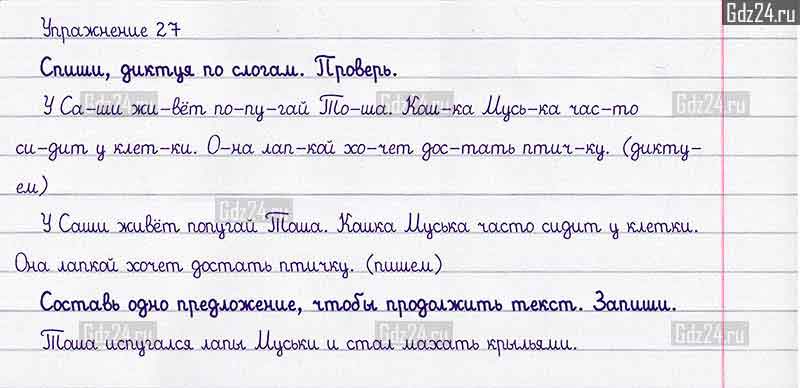 Gdz24.ru
Упражнение 27
Спиши, диктуя по слогам. Проверь.
У Са-ши жи-вёт по-пу-гай То-ша. Кош-ка Мусь-ка час-то
си-дит у клет-ки. О-на лап-кой хо-чет дос-тать птич-ку. (дикту-
ем)
У Саши живёт попугай Тоша. Кошка Муська часто сидит у клетки.
Она лапкой хочет достать птичку. (пишем)
Составь одно предложение, чтобы продолжить текст. Запиши.
Тоша испугался лапы Муськи и стал махать крыльями.